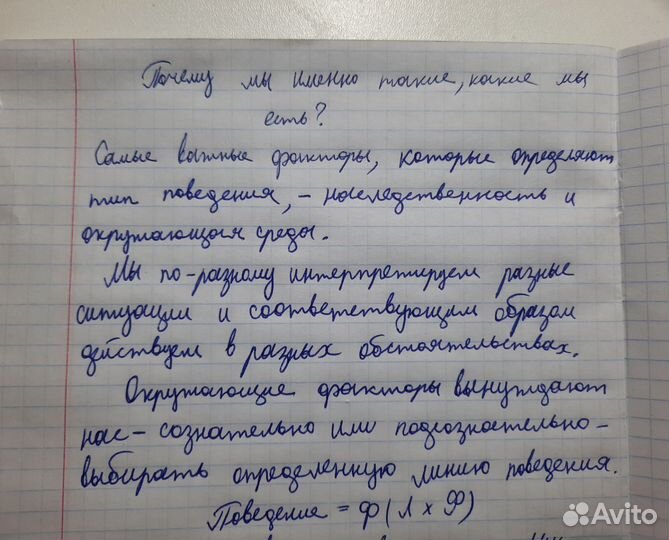 Почему мы именно такие, какие мы
есть?
Самые важные факторы, которые определяют
тип поведения, – наследственность и
окружающая среда.
Мы по-разному интерпретируем разные
ситуации и соответствующим образом
действуем в разных обстоятельствах.
Окружающие факторы вынуждают
нас – сознательно или подсознательно –
выбирать определенную линию поведения.
Поведение = Ф (Л х Ф)
Avito